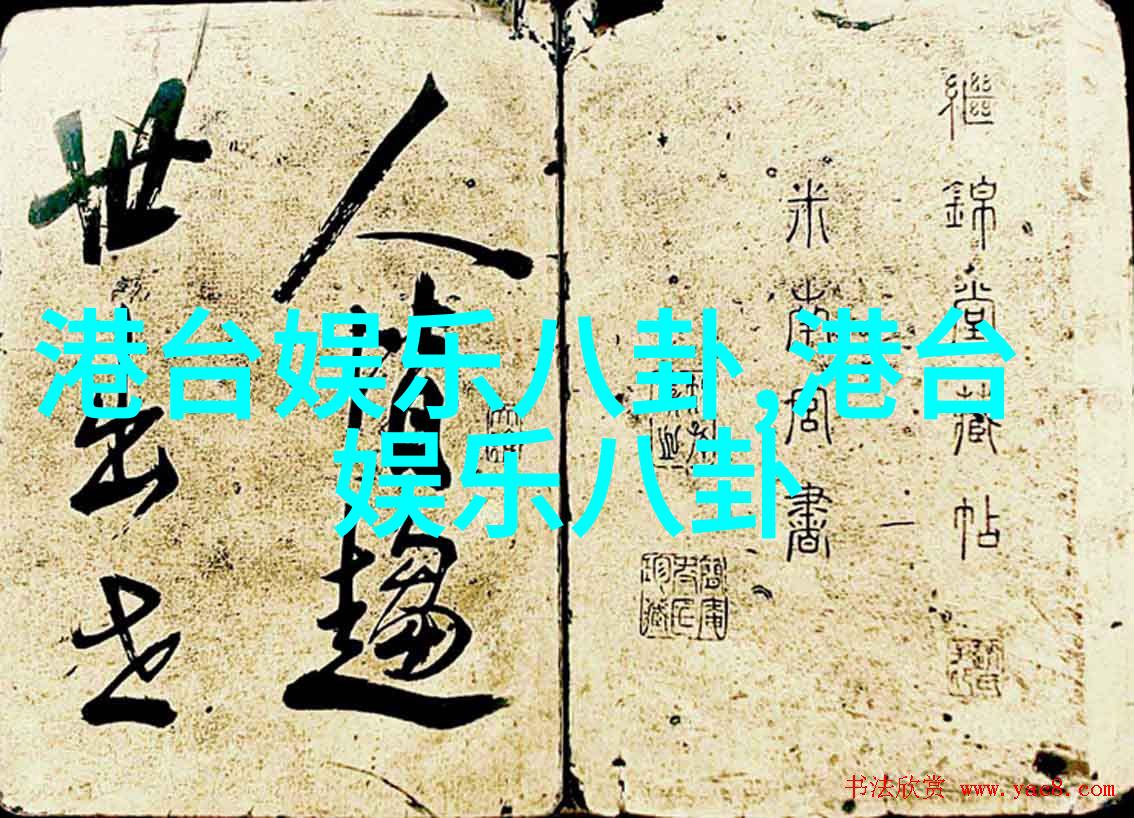 港台娱乐八卦,港台
娱乐八卦
繼錦堂藏帖
米南宮書
一
人皆趨
世出世
书法欣赏 www.yac8.com